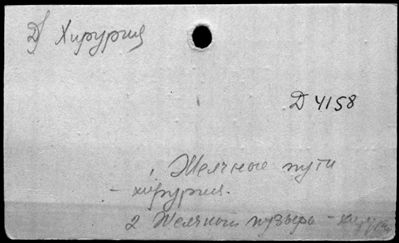 Д) Хирургия
Д 4158
1 Желчные пути
- хирургия.
2 Желчный пузырь -